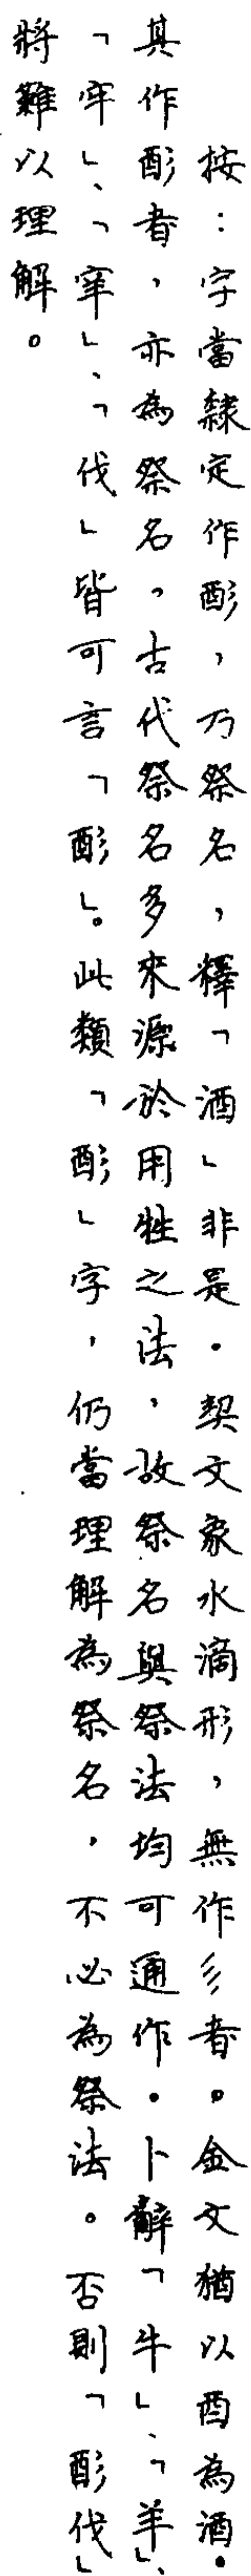 按：字當隸定作酌，乃祭名，釋「酒」非是．契文象水滴形，無作彡者。金文猶以酉為酒．
其作酌者，亦為祭名。古代祭名多來源於用牲之法，故祭名與祭法均可通作．卜辭「牛」、「羊」、
「牢」、「宰」、「伐」皆可言「酌」。此類「酌」字，仍當理解為祭名，不必為祭法。否則「酌伐」
將難以理解。